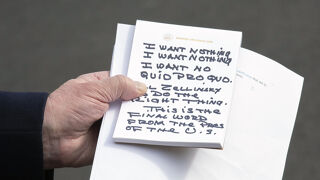 I WANT NOTHING
I WANT NOTHING
I WANT NO
QUID PRO QUO.
L ZELLINSKY
O DO THE
RIGHT THING.
THIS IS THE
FINAL WORD
FROM THE PRES
OF THE U.S.